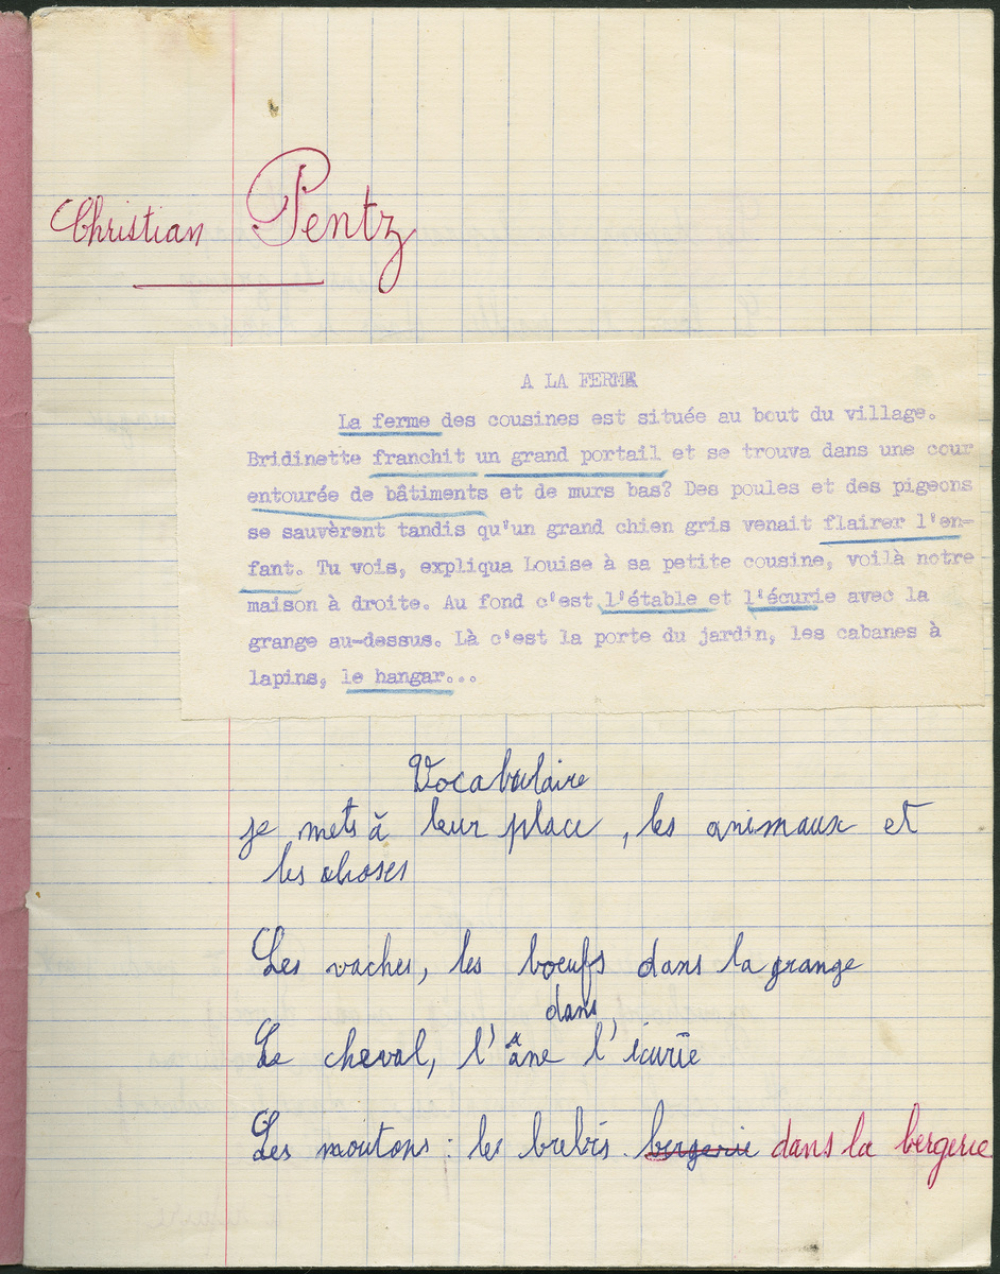 Christian Pentz
A LA FERME
La ferme des cousines est située au bout du village.
Bridinette franchit un grand portail et se trouva dans une cour
entourée de bâtiments et de murs bas? Des poules et des pigeons
se sauvèrent tandis qu'un grand chien gris venait flairer l'en-
fant. Tu vois, expliqua Louise à sa petite cousine, voilà notre
maison à droite. Au fond c'est l'étable et l'écurie avec la
grange au-dessus. Là c'est la porte du jardin, les cabanes à
lapins, le hangar...
Vocabulaire
je mets à leur place, les animaux et
les choses
Les vaches, les boeufs dans la grange
dans
Le cheval, l'âne l'écurie
Les moutons : les brebis bergerie dans la bergerie